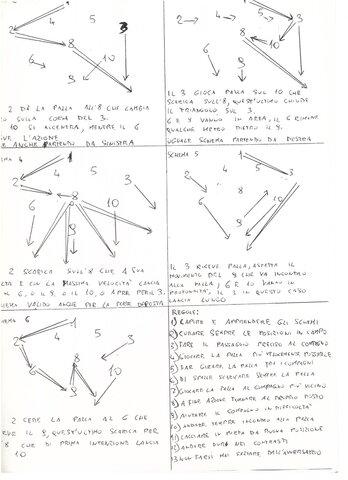 2 4 5 3
8
6 10
2 DÀ LA PALLA ALL'8 CHE CAMBIA
SULLA CORSA DEL 3.
10 SI ACCENTRA, MENTRE IL 6
L'AZIONE
ANCHE PARTENDO DA SINISTRA
2 4 5 3
8
6 10
IL 3 GIOCA PALLA SUL 10 CHE
SCARICA SULL'8, QUEST'ULTIMO CHIUDE
IL TRIANGOLO SUL 3.
6 E 8 VANNO IN AREA, IL 6 RIMANE
QUALCHE METRO DIETRO IL 9.
UGUALE SCHEMA PARTENDO DA DESTRA
4
2 4 5 3
6 8 10
2 SCARICA SULL'8 CHE A SUA
E CON LA MASSIMA VELOCITÀ LANCIA
IL 6, O IL 10, O APRE PER IL 3.
VALIDO ANCHE PER LA PARTE OPPOSTA
SCHEMA 5
1
2 4 5 3
6 8 10
IL 3 RICEVE PALLA, ASPETTA IL
MOVIMENTO DEL 8 CHE VA INCONTRO
ALLA PALLA, 6 E 10 VANNO IN
PROFONDITÀ, IL 3 IN QUESTO CASO
LANCIA LUNGO
6
1
2 4 5 3
6 8 10
2 CEDE LA PALLA AL 6 CHE
IL 8, QUEST'ULTIMO SCARICA PER
8 CHE DI PRIMA INTENZIONE LANCIA
10
REGOLE:
1) CAPIRE E APPRENDERE GLI SCHEMI
2) CURARE SEMPRE LE POSIZIONI IN CAMPO
3) FARE IL PASSAGGIO PRECISO AL COMPAGNO
4) GIOCARE LA PALLA PIÙ VELOCEMENTE POSSIBILE
5) FAR GIRARE LA PALLA TRA I COMPAGNI
6) SEMPRE LA PALLA
7) GIOCARE LA PALLA AL COMPAGNO PIÙ VICINO
8) A FINE AZIONE TORNARE AL PROPRIO POSTO
9) AIUTARE IL COMPAGNO IN DIFFICOLTÀ
10) ANDARE SEMPRE INCONTRO ALLA PALLA
11) CALCIARE IN PORTA DA BUONA POSIZIONE
12) ANDARE DURI NEI CONTRASTI
13) NON FARSI MAI DALL'AVVERSARIO